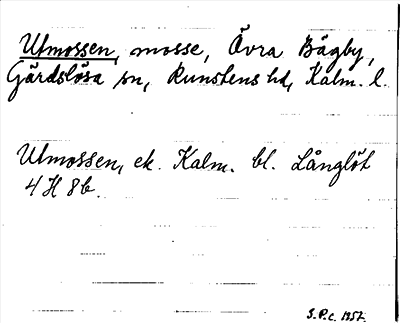 Utmossen, mosse, Övra Bägby,
Gärdslösa sn, Runstens hd, Kalm. l.
Utmossen, ek. Kalm. bl. Långlöt
4 H 8b.
S.P.c. 1957.